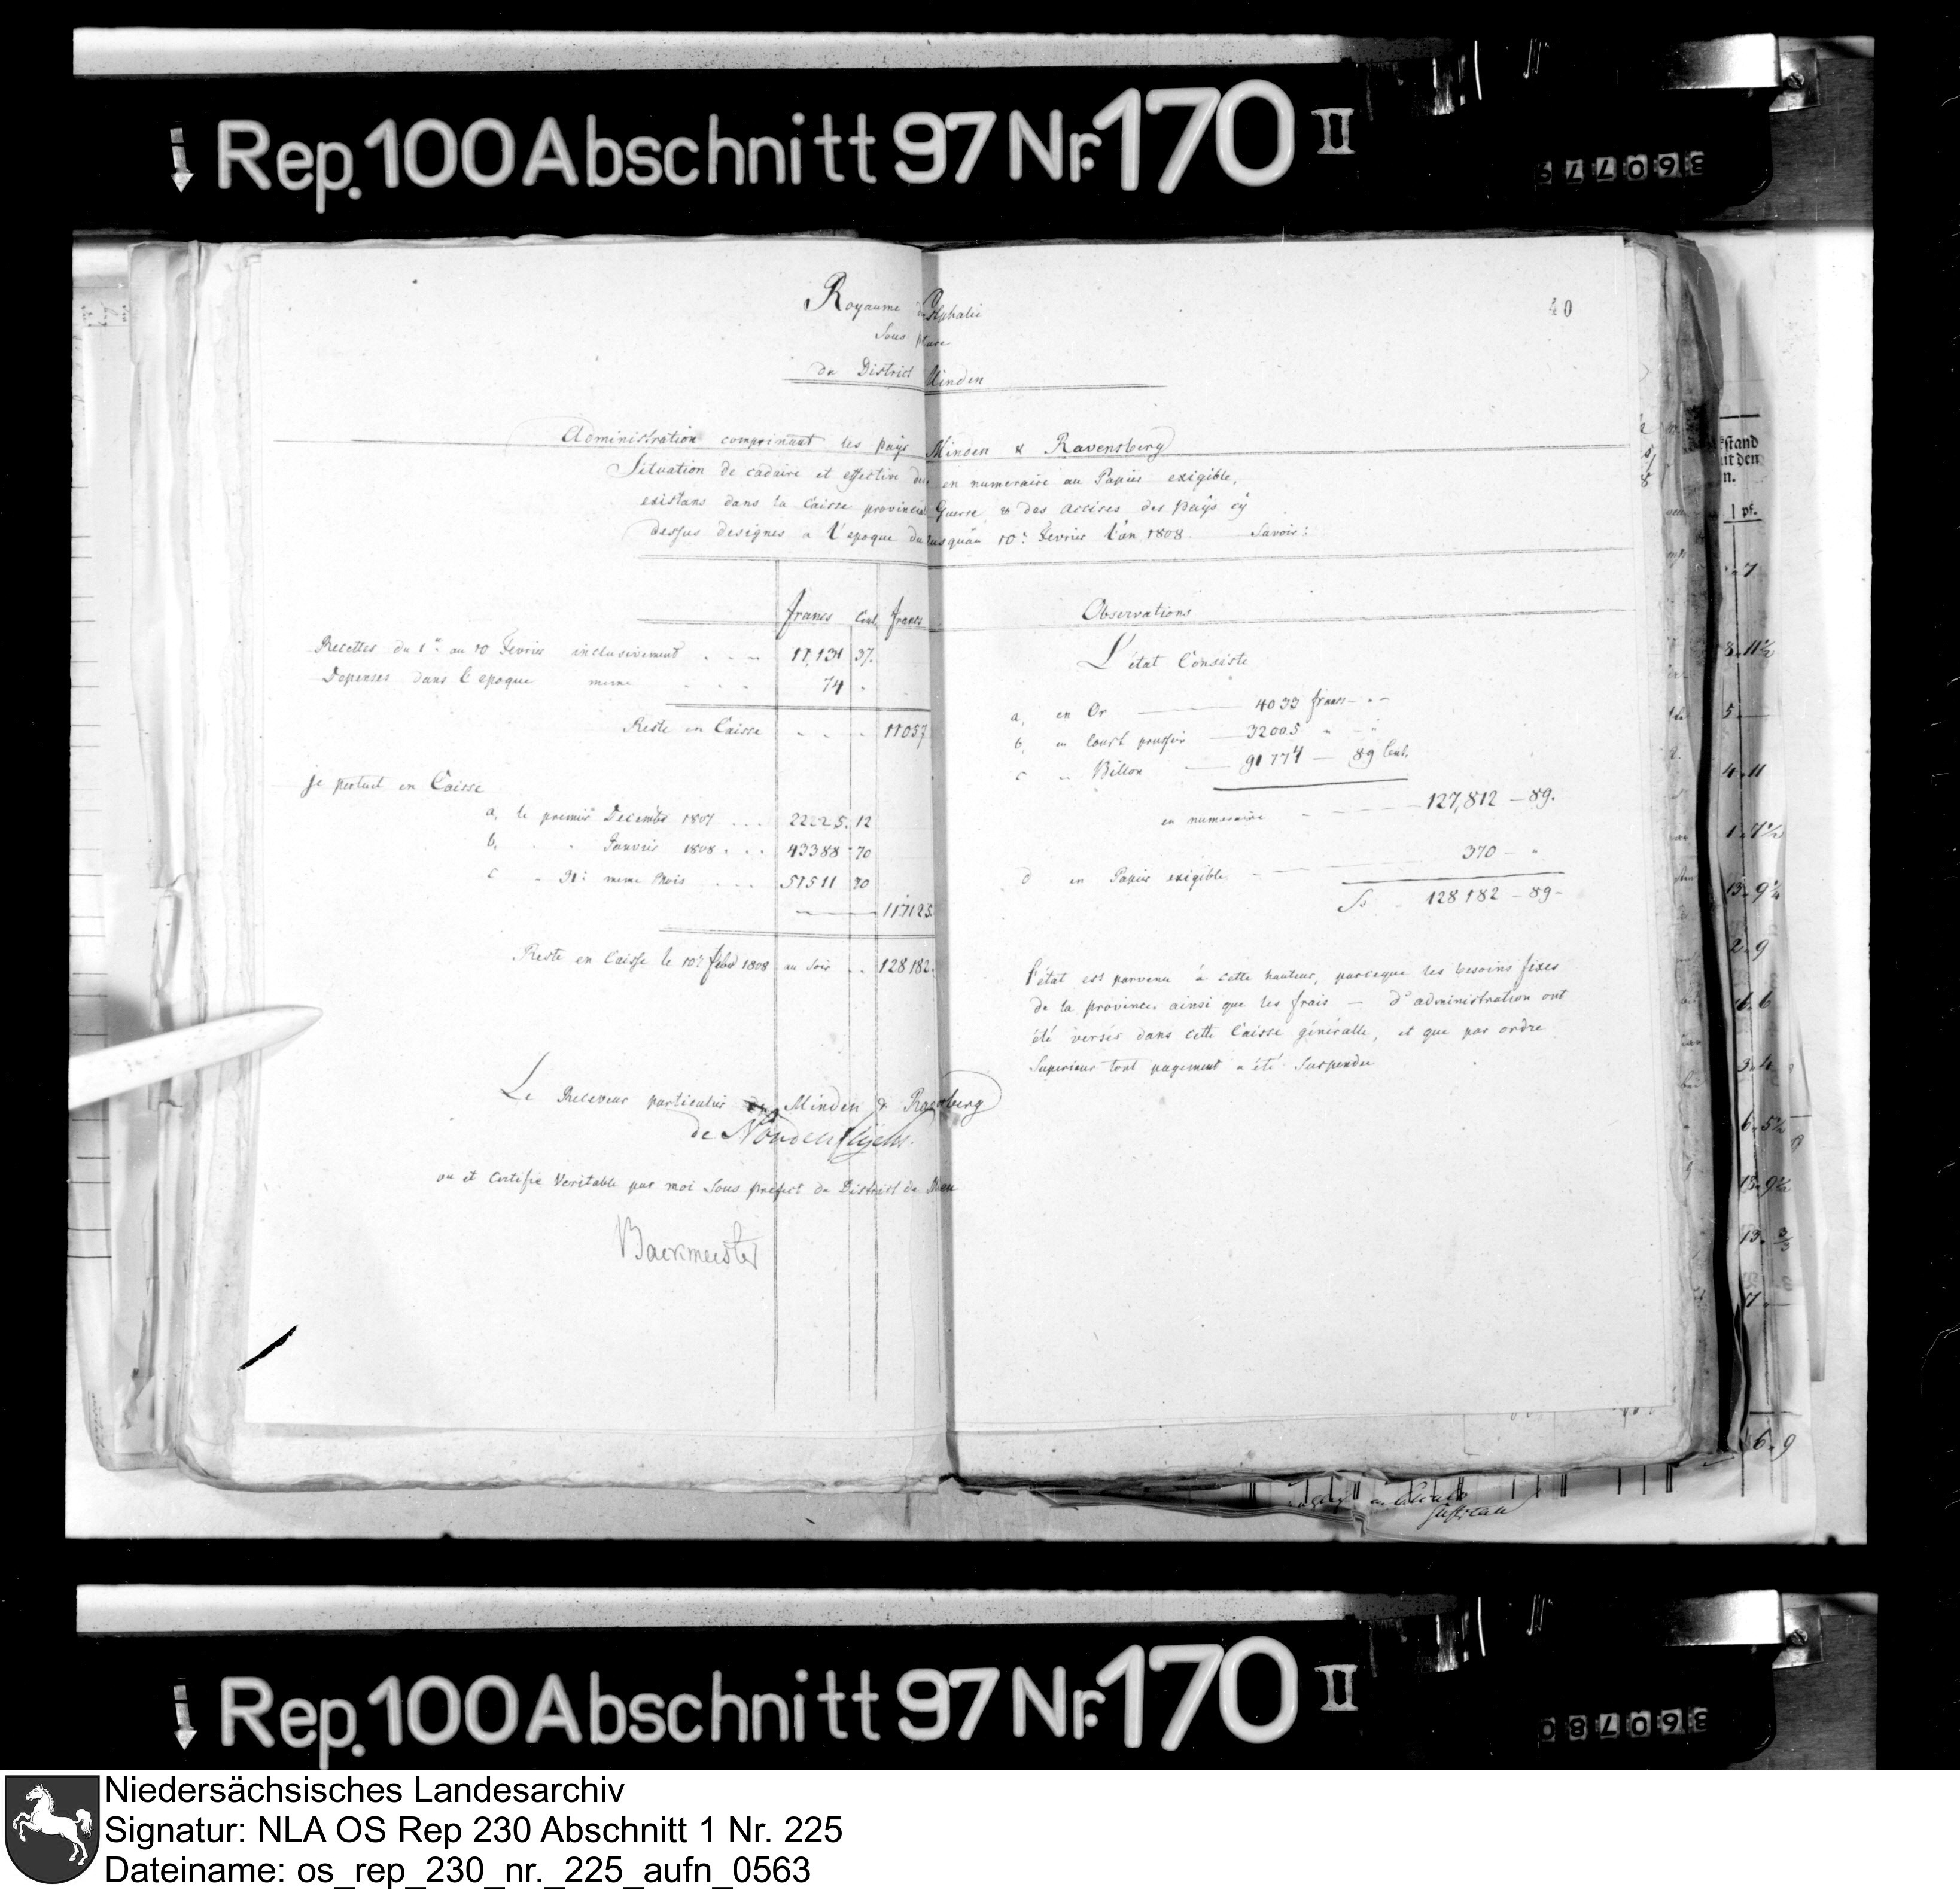 Rep. 100 Abschnitt 97 Nr. 170 II
360779
40
Royaume
Sous
du District Minden
Administration comprimant les pays Minden & Ravensberg
Situation de cadaire et effective en numeraire au Papier exigible,
existans dans la Caisse Guerre & des accises des Pays cy
dessus designes a l'epoque du jusquau 10: Fevrier l'an 1808. Savoir:
francs Cent. francs
Recettes du 1er au 10 Fevrier inclusivement 11,131 37.
Depenses dans l'epoque meme 74
Reste en Caisse 11057
en Caisse
a, le premier Decembr 1807 22225. 12
b, Janvier 1808 43388 70
c 31: meme Mois 51511 70
117125.
Reste en Caisse le 10: febr 1808 au soir 128182.
Observations
L'état Consiste
a, en Or 4033 francs
b, en Court 32005 "
c " Billon 91774 — 89 Cent.
en numeraire 127,812 — 89.
d en Papier exigible 370 — "
128182 — 89 -
l'état est parvenu à cette hauteur, parceque les besoins fixes
de la province, ainsi que les frais — d'administration ont
été versés dans cette Caisse généralle, et que par ordre
Superieur tout pagement a été Suspendu
Le Receveur particulier de Minden &
de Nordenflycht.
vu et Certifie Veritable par moi Sous prefect du District de
Backmeister
Rep. 100 Abschnitt 97 Nr. 170 II
360780
Niedersächsisches Landesarchiv
Signatur: NLA OS Rep 230 Abschnitt 1 Nr. 225
Dateiname: os_rep_230_nr._225_aufn_0563